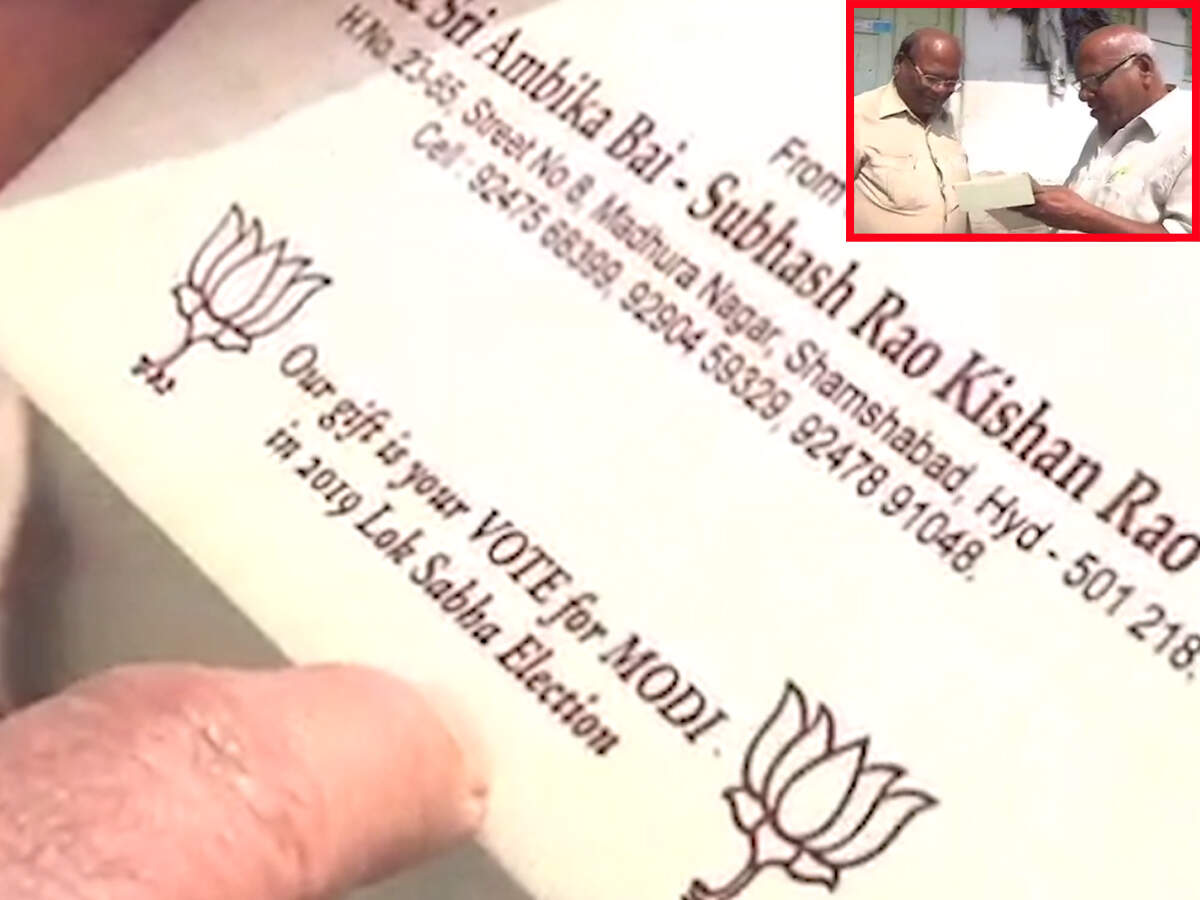 From
Sri Ambika Bai - Subhash Rao Kishan Rao
H.No. 23-55, Street No 8, Madhura Nagar, Shamshabad, Hyd - 501 218.
Cell : 92475 68399, 92904 59329, 92478 91048.
Our gift is your VOTE for MODI.
in 2019 Lok Sabha Election